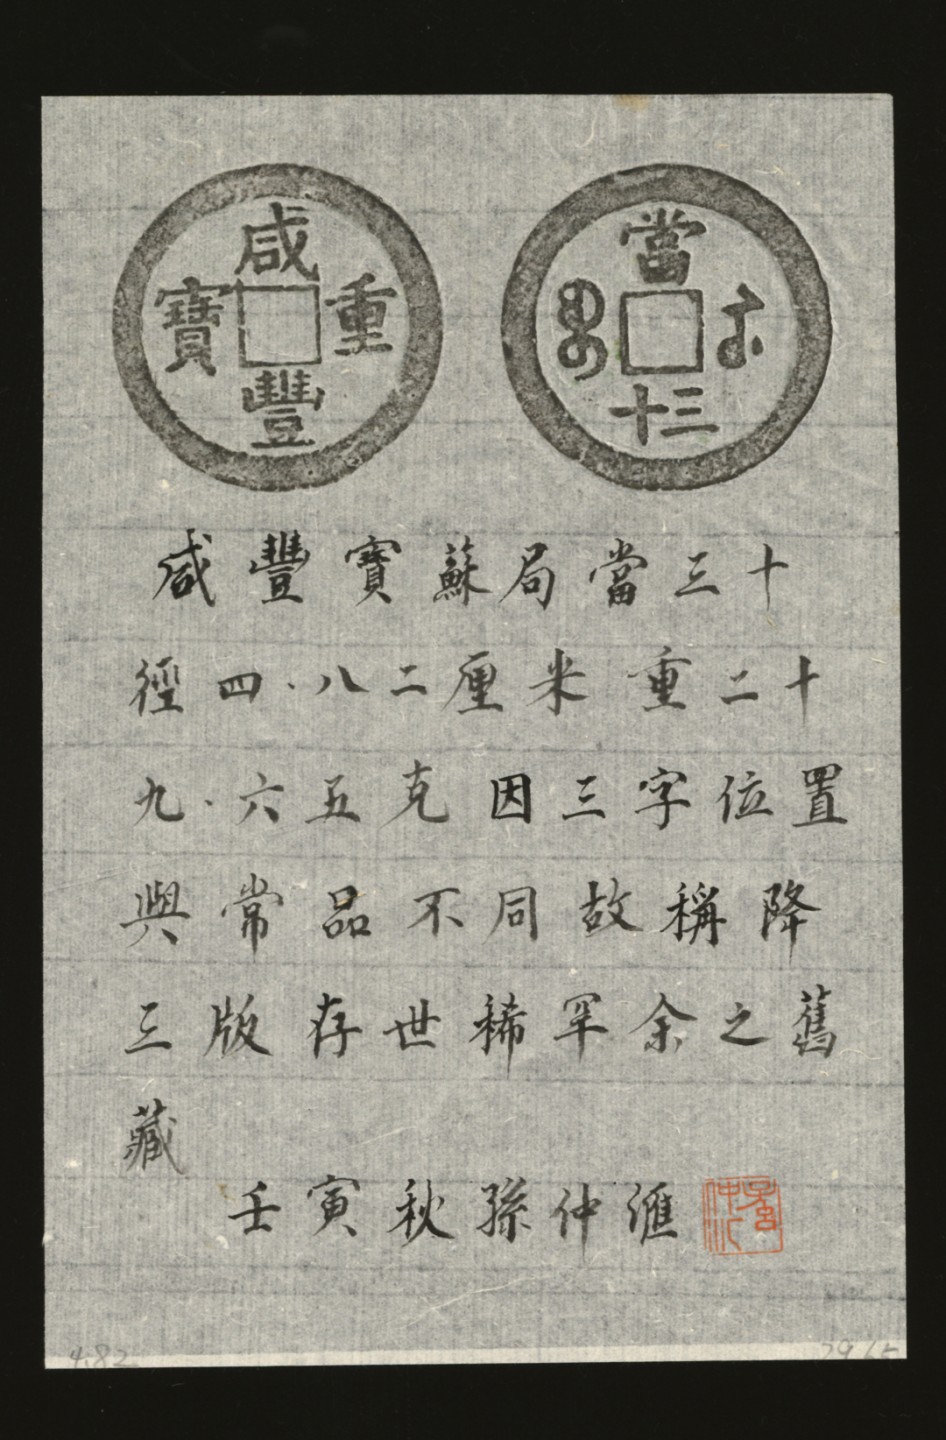 咸豐重寶
當三十
咸豐寶蘇局當三十
徑四.八二厘米 重二十
九.六五克因三字位置
與常品不同故稱降
三版存世稀罕余之舊
藏
壬寅秋孫仲滙
4.82
29.65